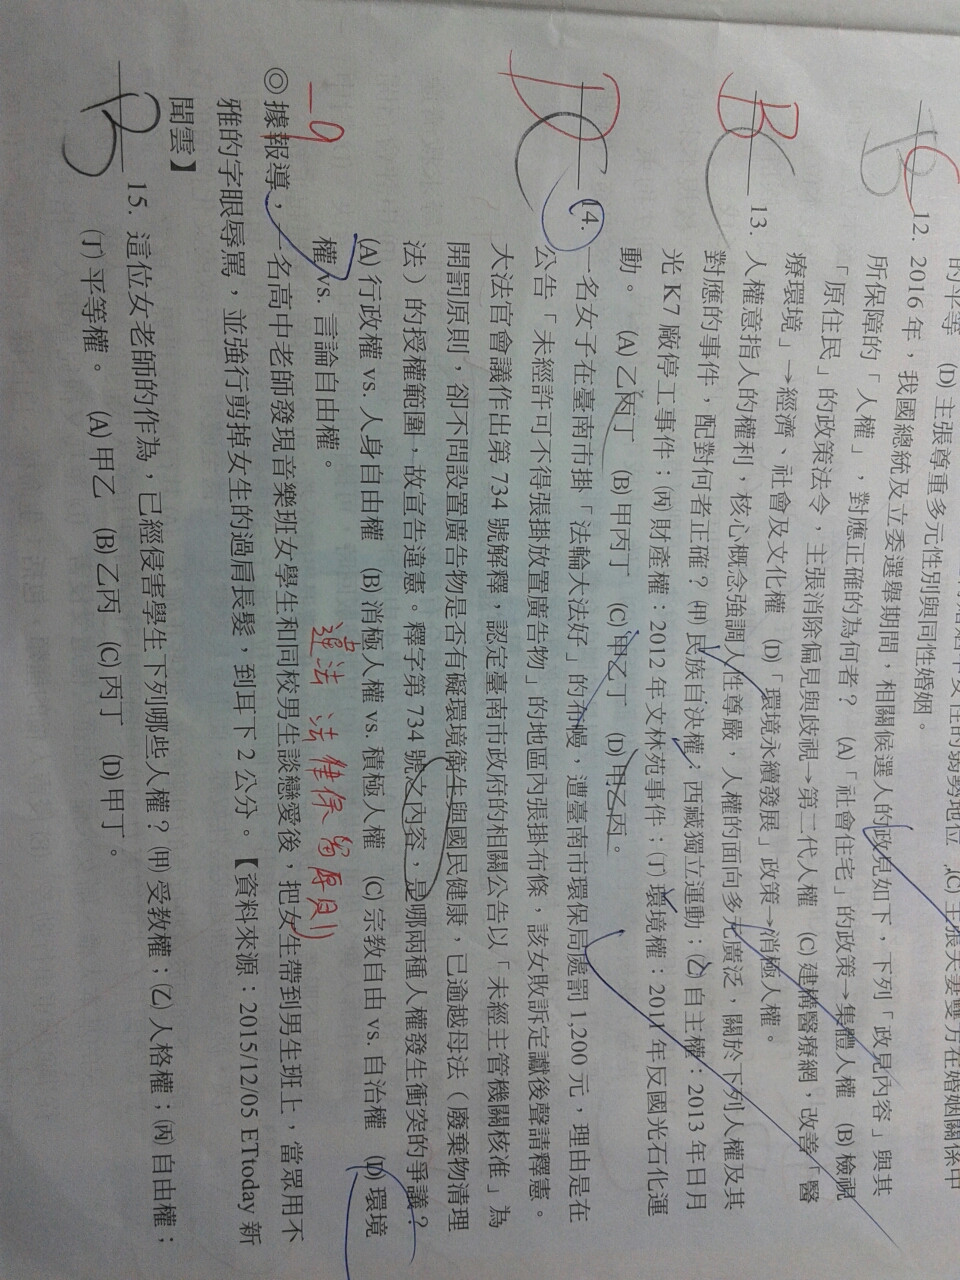 的平等 (D)主張尊重多元性別與同性婚姻。
12. 2016 年，我國總統及立委選舉期間，相關候選人的政見如下，下列「政見內容」與其
所保障的「人權」，對應正確的為何者？ (A)「社會住宅」的政策→集體人權 (B)檢視
「原住民」的政策法令，主張消除偏見與歧視→第二代人權 (C)建構醫療網，改善「醫
療環境」→經濟、社會及文化權 (D)「環境永續發展」政策→消極人權。
B
13. 人權意指人的權利，核心概念強調人性尊嚴，人權的面向多元廣泛，關於下列人權及其
對應的事件，配對何者正確？(甲)民族自決權：西藏獨立運動；(乙)自主權：2013 年日月
光 K7 廠停工事件；(丙)財產權：2012 年文林苑事件；(丁)環境權：2011 年反國光石化運
動。 (A)乙丙丁 (B)甲丙丁 (C)甲乙丁 (D)甲乙丙。
D
14. 一名女子在臺南市掛「法輪大法好」的布幔，遭臺南市環保局處罰 1,200 元，理由是在
公告「未經許可不得張掛放置廣告物」的地區內張掛布條，該女敗訴定讞後聲請釋憲。
大法官會議作出第 734 號解釋，認定臺南市政府的相關公告以「未經主管機關核准」為
開罰原則，卻不問設置廣告物是否有礙環境衛生與國民健康，已逾越母法（廢棄物清理
法）的授權範圍，故宣告違憲。釋字第 734 號之內容，是哪兩種人權發生衝突的爭議？
(A)行政權 vs. 人身自由權 (B)消極人權 vs. 積極人權 (C)宗教自由 vs. 自治權 (D)環境
權 vs. 言論自由權。
違法 法律保留原則
-9
◎據報導，一名高中老師發現音樂班女學生和同校男生談戀愛後，把女生帶到男生班上，當眾用不
雅的字眼辱罵，並強行剪掉女生的過肩長髮，到耳下 2 公分。【資料來源：2015/12/05 ETtoday 新
聞雲】
B
15. 這位女老師的作為，已經侵害學生下列哪些人權？(甲)受教權；(乙)人格權；(丙)自由權；
(丁)平等權。 (A)甲乙 (B)乙丙 (C)丙丁 (D)甲丁。